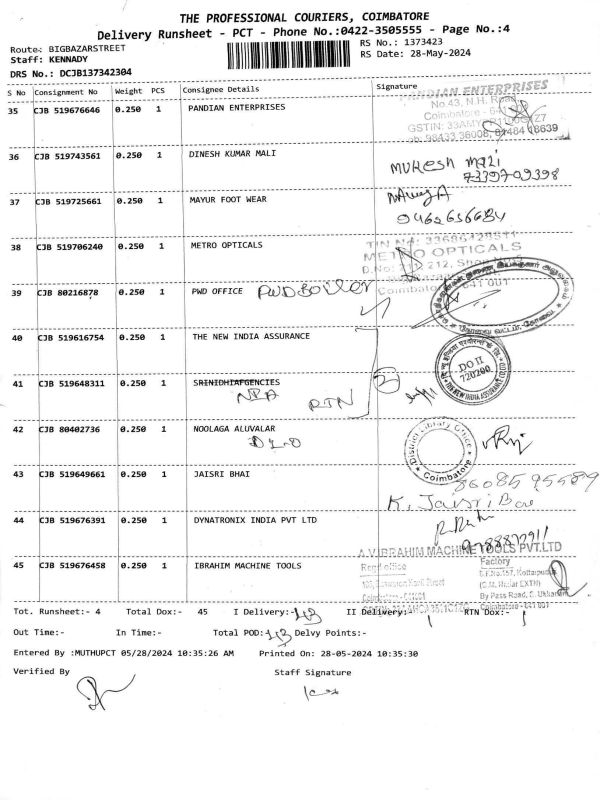 THE PROFESSIONAL COURIERS, COIMBATORE
Delivery Runsheet - PCT - Phone No.:0422-3505555 - Page No.:4
Route: BIGBAZARSTREET
RS No.: 1373423
Staff: KENNADY
RS Date: 28-May-2024
DRS No.: DCJB137342304
S No Consignment No Weight PCS Consignee Details Signature
35 CJB 519676646 0.250 1 PANDIAN ENTERPRISES
PANDIAN ENTERPRISES
No.43, N.H. Road
Coimbatore
36 CJB 519743561 0.250 1 DINESH KUMAR MALI
Mukesh mali
7339709398
37 CJB 519725661 0.250 1 MAYUR FOOT WEAR
38 CJB 519706240 0.250 1 METRO OPTICALS
METRO OPTICALS
39 CJB 80216878 0.250 1 PWD OFFICE
Coimbatore - 641 001
40 CJB 519616754 0.250 1 THE NEW INDIA ASSURANCE
DO II
720200
41 CJB 519648311 0.250 1 SRINIDHIAFGENCIES
RTN
42 CJB 80402736 0.250 1 NOOLAGA ALUVALAR
DLO
District Library Office
Coimbatore
43 CJB 519649661 0.250 1 JAISRI BHAI
8608595589
K. Jaisri Bai
44 CJB 519676391 0.250 1 DYNATRONIX INDIA PVT LTD
45 CJB 519676458 0.250 1 IBRAHIM MACHINE TOOLS
A.V.IBRAHIM MACHINE TOOLS PVT.LTD
Regd office Factory
Tot. Runsheet:- 4 Total Dox:- 45 I Delivery:- 43 II Delivery:- 1 RTN Dox:- 1
Out Time:- In Time:- Total POD: 43 Delvy Points:-
Entered By :MUTHUPCT 05/28/2024 10:35:26 AM Printed On: 28-05-2024 10:35:30
Verified By Staff Signature